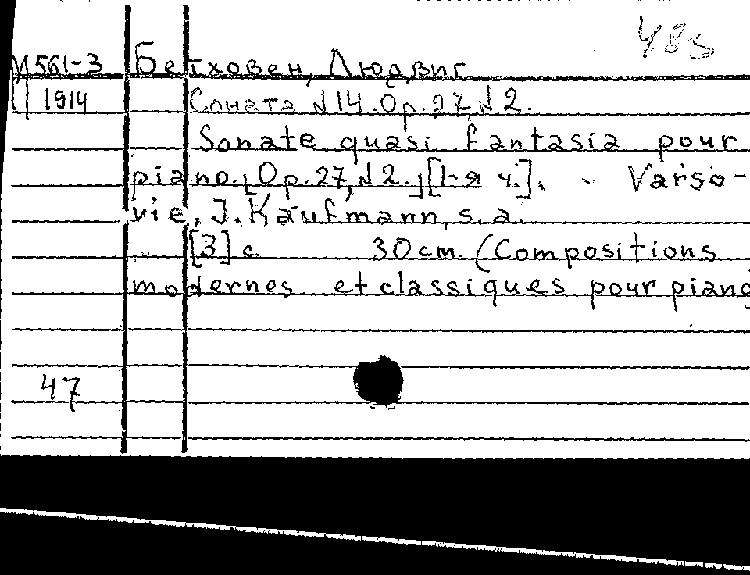 483
М561-3 Бетховен, Людвиг
1914 Соната №14. Op. 27, №2.
Sonate quasi fantasia pour
piano. [Op. 27, №2.] [1-я ч.]. - Varso-
vie, J. Kaufmann, s.a.
[3] с. 30 cm. (Compositions
modernes et classiques pour piano
47